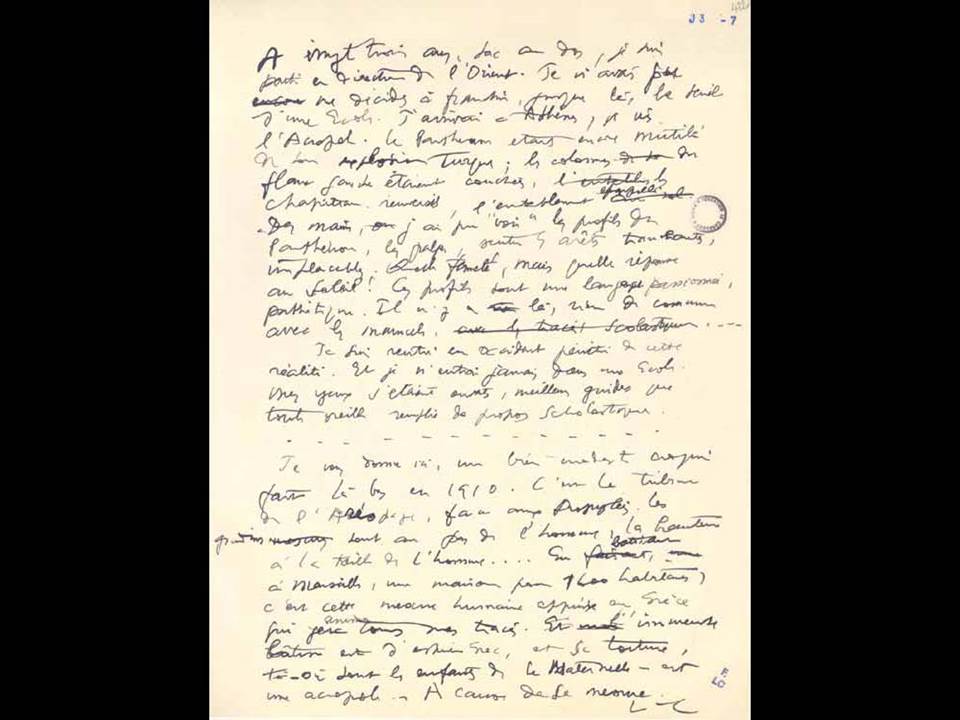 J3 -7
A vingt trois ans, sac au dos, je suis
parti en direction de l'Orient. Je n'avais pas
encore me décider à franchir, jusque là, le seuil
d'une Ecole. J'arrivai à Athènes, je vis
l'Acropole. Le Parthénon était encore mutilé
de son explosion turque ; les colonnes de son du
flanc gauche étaient couchées, l'entabl les
chapiteaux renversés, l'entablement sol
Des mains, j'ai pu "voir" les profils du
Parthénon, les palper, sentir les arêts tranchants,
implacables. Quelle fermeté, mais quelle réponse
au soleil ! Ces profils sont un langage passionné,
pathétique. Il n'y a là, rien de commun
avec les manuels. avec les tracés scolastiques ...
Je suis rentré en occident pénétré de cette
réalité. Et je n'entrai jamais dans une Ecole.
Mes yeux s'étaient ouverts, meilleurs guides que
toute oreille remplie de propos scholastique.
Je vous donne ici, un bien modeste croquis
fait là bas en 1910. C'est la tribune
de l'Aréopage, face aux Propylées. Les
gradins sont au pas de l'homme, la hauteur
à la taille de l'homme.... En
à Marseille, une maison pour 1600 habitants,
c'est cette mesure humaine apprise en Grèce
qui anime tous mes tracés. Et immense
bâtisse est d'esprit Grec, et sa toiture,
là-où sont les enfants de la Maternelle – est
une acropole – A cause de la mesure.
L-C
F.
LC